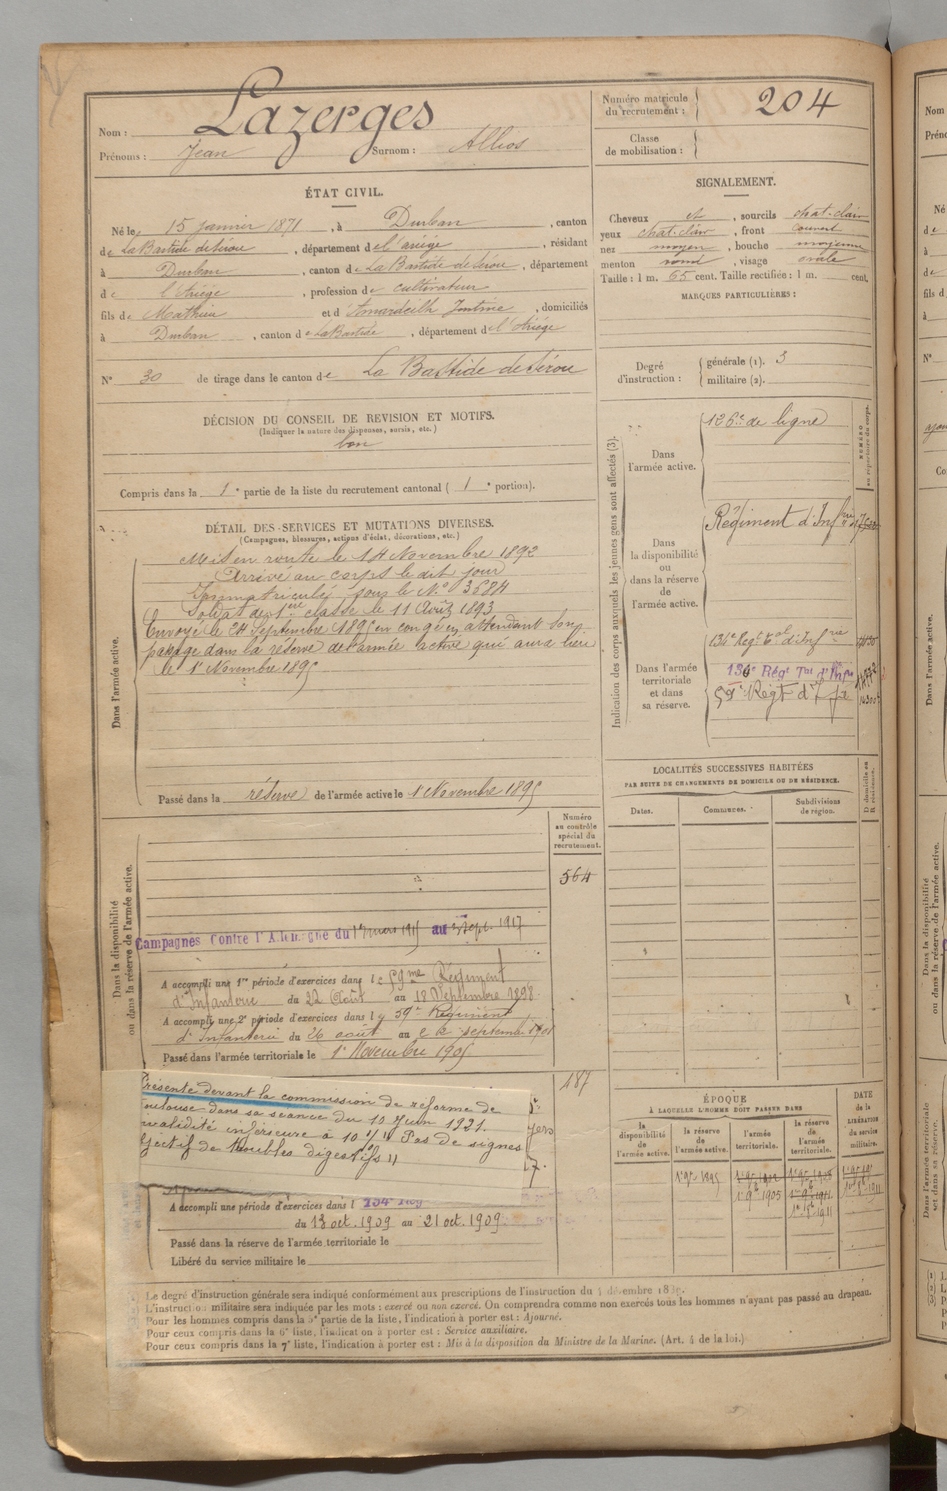 Nom : Lazerges
Prénoms : Jean Surnom : Allios
Numéro matricule du recrutement : 204
Classe de mobilisation :
ÉTAT CIVIL.
Né le 15 janvier 1871, à Durban, canton
de La Bastide de Sérou, département de l'ariège, résidant
à Durban, canton de La Bastide de Sérou, département
de l'Ariège, profession de cultivateur
fils de Mathieu et d , domiciliés
à Durban, canton de La Bastide, département de l'Ariège
N° 30 de tirage dans le canton de La Bastide de Sérou
SIGNALEMENT.
Cheveux , sourcils chat-clair
yeux chat-clair, front couvert
nez moyen, bouche moyenne
menton rond, visage ovale
Taille : 1 m. 65 cent. Taille rectifiée : 1 m. cent.
MARQUES PARTICULIÈRES :
Degré d'instruction : générale (1). 3
militaire (2).
DÉCISION DU CONSEIL DE REVISION ET MOTIFS.
(Indiquer la nature des dispenses, sursis, etc.)
bon
Compris dans la 1e partie de la liste du recrutement cantonal (1e portion).
DÉTAIL DES SERVICES ET MUTATIONS DIVERSES.
(Campagnes, blessures, actions d'éclat, décorations, etc.)
Dans l'armée active.
Mis en route le 14 Novembre 1892
Arrivé au corps le dit jour
Immatriculé sous le N° 3684
Soldat de 1ère classe le 11 Août 1893
Envoyé le 24 Septembre 1895 en congé en attendant son
passage dans la réserve de l'armée active qui aura lieu
le 1er Novembre 1895
Passé dans la réserve de l'armée active le 1 Novembre 1895
Indication des corps auxquels les jeunes gens sont affectés (3).
Dans l'armée active.
126e de ligne
Dans la disponibilité ou dans la réserve de l'armée active.
Régiment d'Infrie
Dans l'armée territoriale et dans sa réserve.
134e Régt d'Infrie
134e Régt Tal d'Infie
59e Régt d'Ifie
LOCALITÉS SUCCESSIVES HABITÉES
PAR SUITE DE CHANGEMENTS DE DOMICILE OU DE RÉSIDENCE.
Dates.
Communes.
Subdivisions de région.
Dans la disponibilité
ou dans la réserve de l'armée active.
Numéro au contrôle spécial du recrutement.
564
Campagnes Contre l'Allemagne du 1 mars 1915 au 3 Sept. 1917
A accompli une 1re période d'exercices dans le 59me Régiment
d'Infanterie du 22 Août au 18 Septembre 1898
A accompli une 2e période d'exercices dans le 59e Régiment
d'Infanterie du 26 août au septembre 1901
Passé dans l'armée territoriale le 1er Novembre 1905
187
Présenté devant la commission de réforme de
Toulouse dans sa séance du 10 Juin 1921.
invalidité inférieure à 10 % Pas de signes
objectif de troubles digestifs
A accompli une période d'exercices dans l 134e Rég
du 13 oct. 1909 au 21 oct. 1909
Passé dans la réserve de l'armée territoriale le
Libéré du service militaire le
ÉPOQUE
À LAQUELLE L'HOMME DOIT PASSER DANS
la disponibilité de l'armée active.
la réserve de l'armée active.
l'armée territoriale.
la réserve de l'armée territoriale.
DATE de la LIBÉRATION du service militaire.
1 9e 1895
1 9e 1905
Le degré d'instruction générale sera indiqué conformément aux prescriptions de l'instruction du décembre
L'instruction militaire sera indiquée par les mots : exercé ou non exercé. On comprendra comme non exercés tous les hommes n'ayant pas passé au drapeau.
Pour les hommes compris dans la 5e partie de la liste, l'indication à porter est : Ajourné.
Pour ceux compris dans la 6e liste, l'indication à porter est : Service auxiliaire.
Pour ceux compris dans la 7e liste, l'indication à porter est : Mis à la disposition du Ministre de la Marine. (Art. 4 de la loi.)